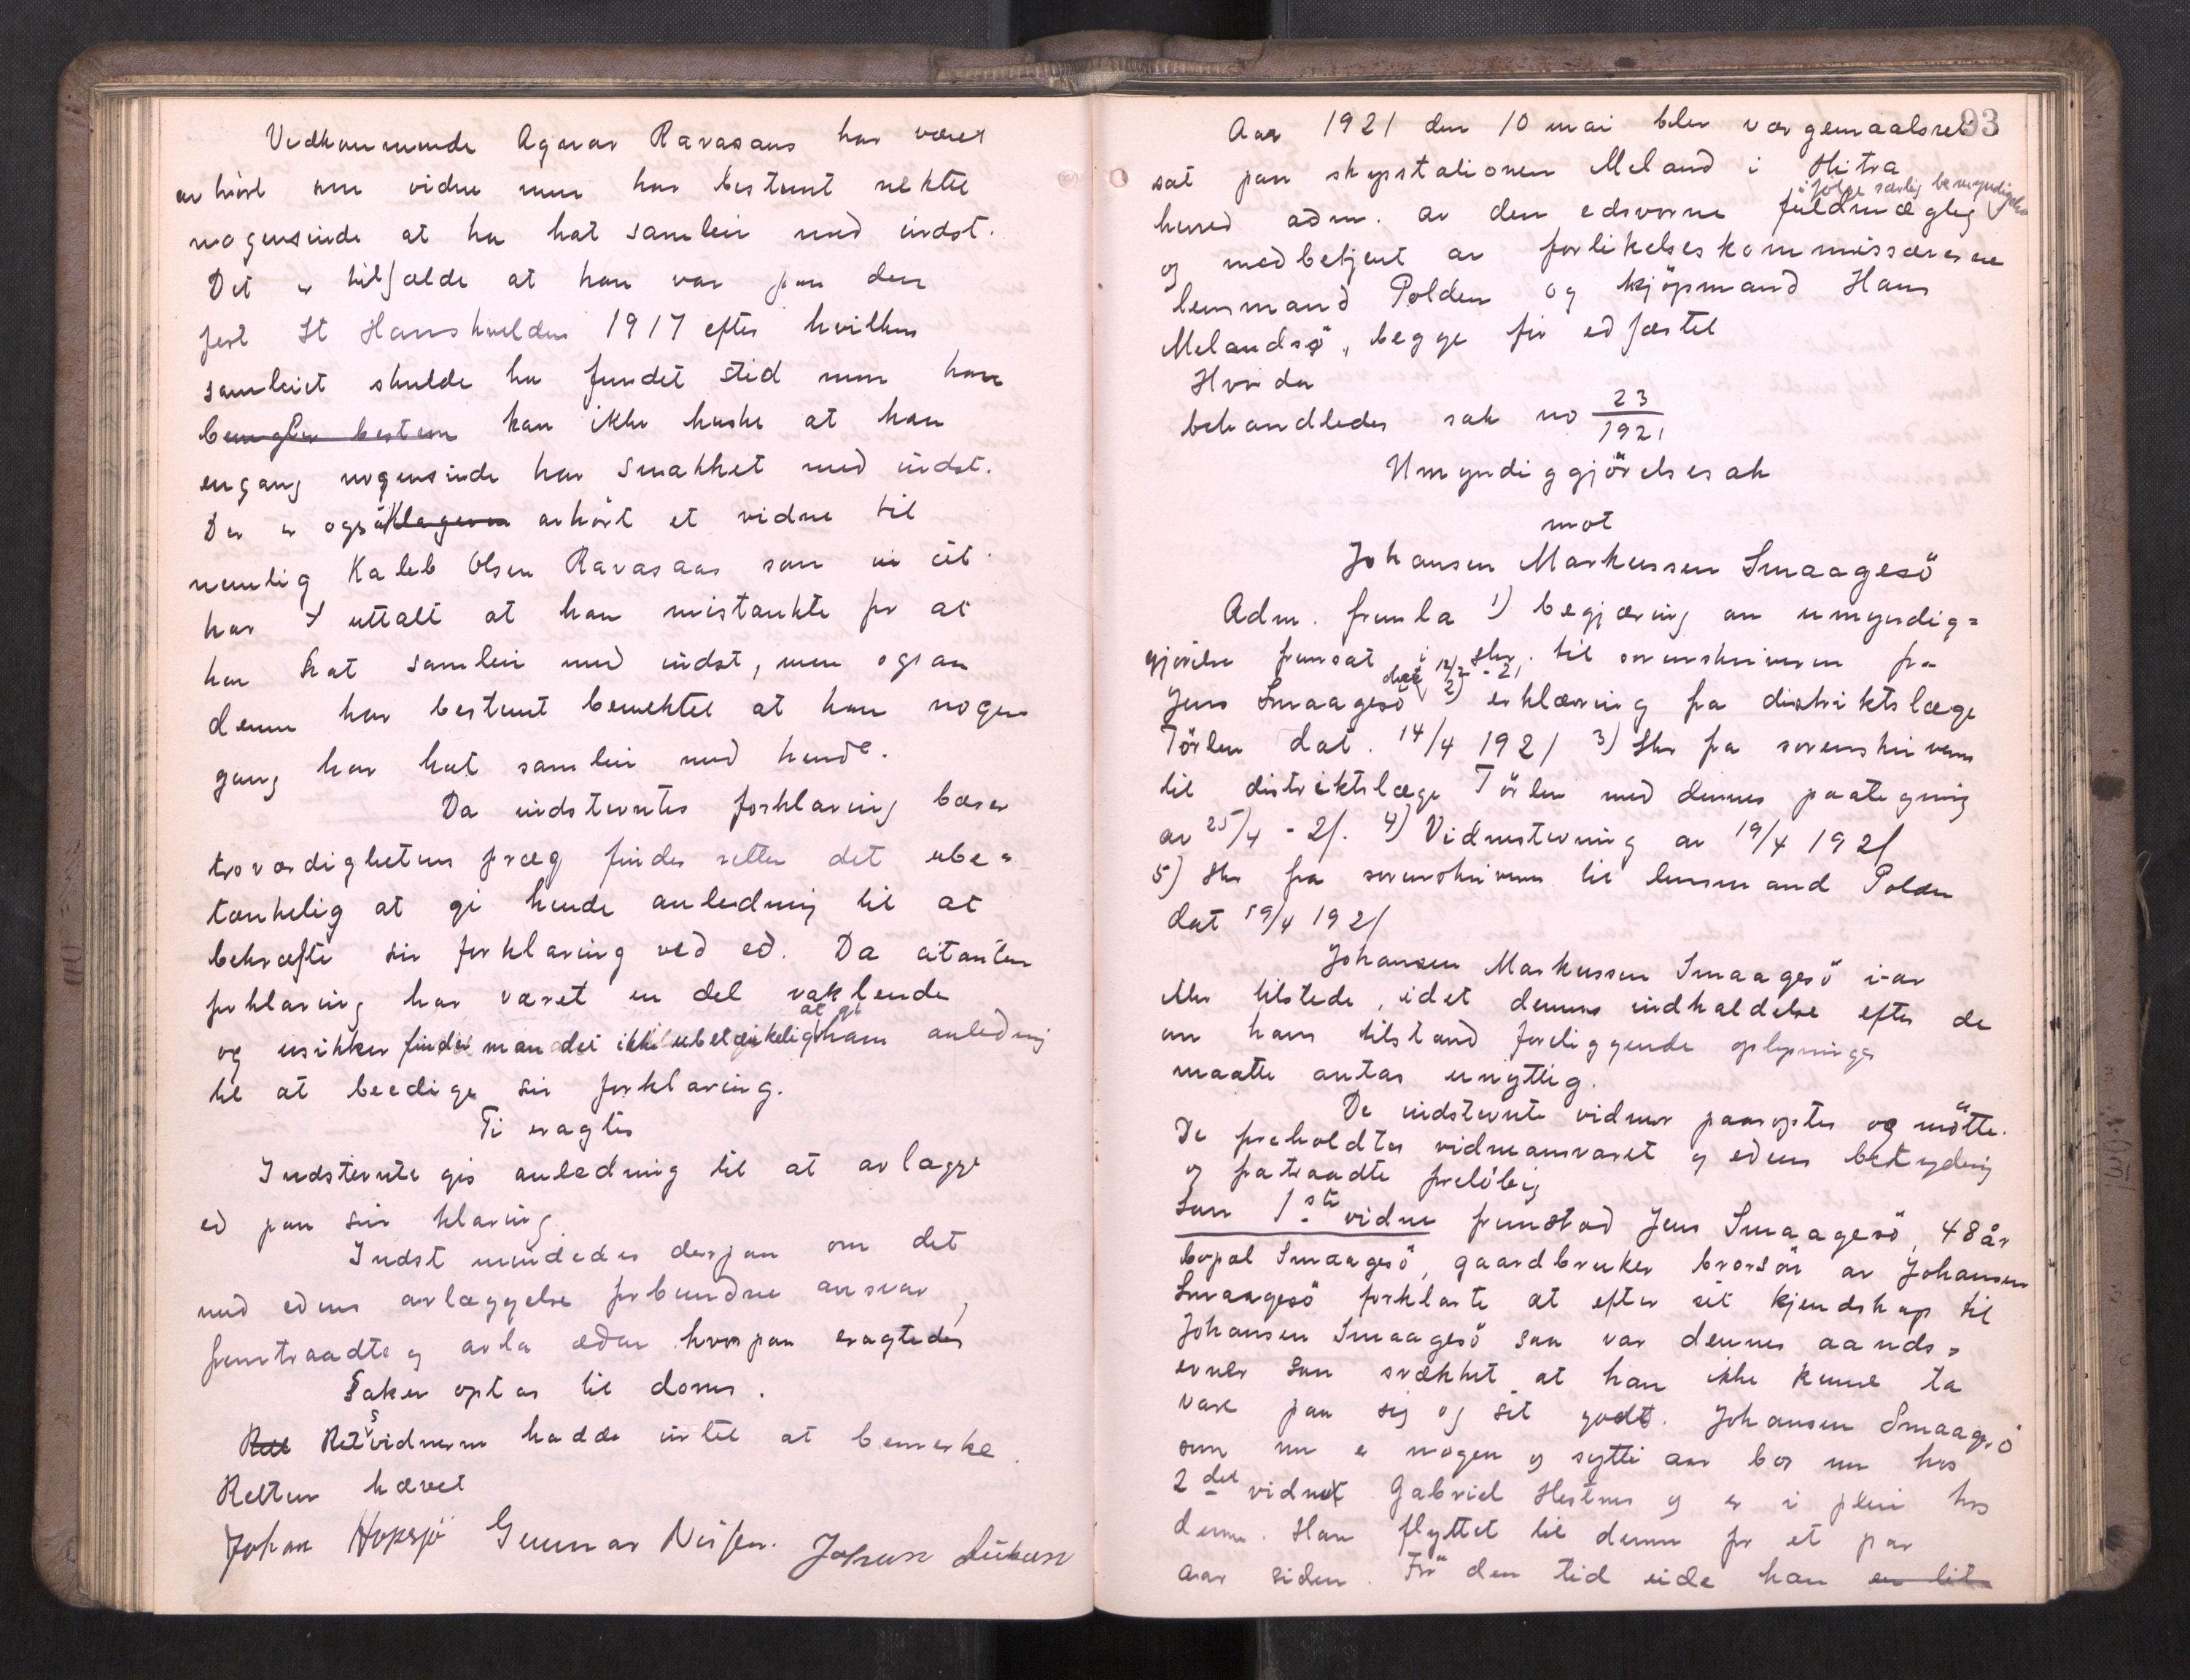 Vedkommende Agnar Ravasaas har været
avhört som vidne men har bestemt nektet
nogensinde at ha hat samleie med indst.
Det er tilfælde at han var paa den
fest St Hanskvelden 1917 efter hvilken
samleiet skulde ha fundet sted men han
benegter bestem kan ikke huske at han
engang nogensinde har snakket med indst.
Der er også klageren avhört et vidne til
nemlig Kaleb Olsen Ravasaas som cit
har uttalt at han mistænkte for at
ha hat samleie med indst, men ogsaa
denne har bestemt benektet at han nogen
gang har hat samleie med hende.
Da indstevntes forklaring bærer
troværdighetens præg findes retten det ube-
tænkelig at gi hende anledning til at
bekræfte sin forklaring ved ed. Da citanten
forklaring har været en del vaklende
og usikker finder man det ikke ubetænkelig at gi ham anledning
til at beedige sin forklaring.
Ti eragtes
Indstevnte gis anledning til at avlægge
ed paa sin klaring
Indst mindedes derpaa om det
med edens avlæggelse forbundne ansvar,
fremtraadte og avla eden hvorpaa eragtedes
Saken optas til doms.
Ret Retsvidnerne hadde intet at bemerke.
Retten hævet
Johan Hopsjö Gunnar Nilsen. Johan
93
Aar 1921 den 10 mai blev vergemaalsret
sat paa skysstationen Meland i Hitra
herred adm. av den edsvorne fuldmægtig i følge særlig bemyndigelse
og medbetjent av forlikelseskommissærerne
lensmand Polden og kjöpmand Hans
Melandsö, begge för edfæstet
Hvorda
behandledes sak no 23/1921
Umyndiggjörelsesak
mot
Johansen Markussen Smaagesö
Adm. fremla 1) begjæring om umyndig=
gjörelse fremsat i skr. til sorenskriveren fra
Jens Smaagesö dat 12/2 - 21 2) erklæring fra distriktslæge
Törlen dat. 14/4 1921 3) Skr fra sorenskriveren
til distriktslæge Törlen med dennes paategning
av 25/4 - 21. 4) Vidnestevning av 19/4 1921
5) Skr fra sorenskriveren til lensmand Polden
dat 19/4 1921
Johansen Markussen Smaagesö var
ikke tilstede, idet dennes indkaldelse efter de
om hans tilstand foreliggende oplysninger
maatte antas unyttig.
De indstevnte vidner paaroptes og mötte.
De foreholdtes vidneansvaret og edens betydning
og fratraadte foreløbig
Som 1ste vidne fremstod Jens Smaagesö, 48 år
bopæl Smaagesö, gaardbruker brorsön av Johansen
Smaagesö forklarte at efter sit kjendskap til
Johansen Smaagesö saa var dennes aands=
evner saa svækket at han ikke kunne ta
vare paa sig og sit gods. Johansen Smaagesö
som nu er nogen og sytti aar bor nu hos
2det vidnet Gabriel Hestnes og er i pleie hos
denne. Han flyttet til denne for et par
aar siden. För den tid eide han en lit